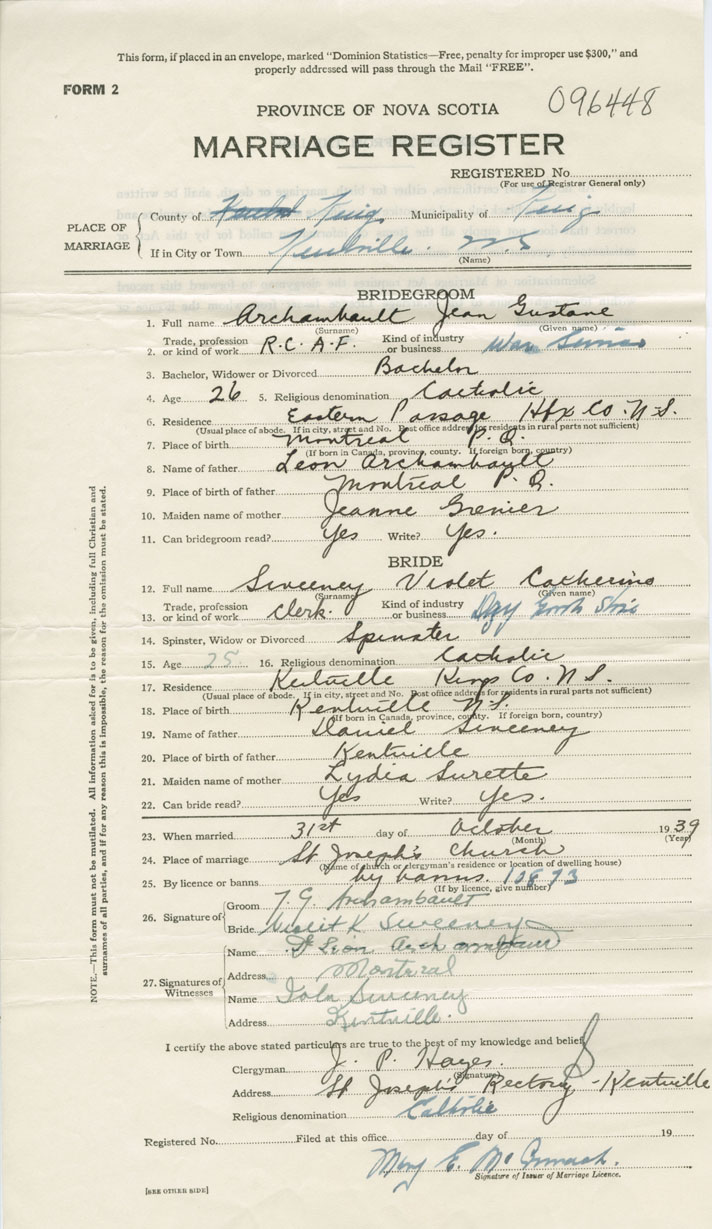 This form, if placed in an envelope, marked "Dominion Statistics—Free, penalty for improper use $300," and
properly addressed will pass through the Mail "FREE".
FORM 2
096448
PROVINCE OF NOVA SCOTIA
MARRIAGE REGISTER
REGISTERED No.
(For use of Registrar General only)
PLACE OF MARRIAGE
County of Kings Municipality of Kings
If in City or Town Kentville N.S.
(Name)
BRIDEGROOM
1. Full name Archambault Jean Gustave
(Surname) (Given name)
2. Trade, profession or kind of work R.C.A.F. Kind of industry or business War Service
3. Bachelor, Widower or Divorced Bachelor
4. Age 26 5. Religious denomination Catholic
6. Residence Eastern Passage Hfx Co. N.S.
(Usual place of abode. If in city, street and No. Post office address for residents in rural parts not sufficient)
7. Place of birth Montreal P.Q.
(If born in Canada, province, county. If foreign born, country)
8. Name of father Leon Archambault
9. Place of birth of father Montreal P.Q.
10. Maiden name of mother Jeanne Grenier
11. Can bridegroom read? Yes Write? Yes.
BRIDE
12. Full name Sweeney Violet Catherine
(Surname) (Given name)
13. Trade, profession or kind of work Clerk. Kind of industry or business
14. Spinster, Widow or Divorced Spinster
15. Age 25 16. Religious denomination Catholic
17. Residence Kentville Kings Co. N.S.
(Usual place of abode. If in city, street and No. Post office address for residents in rural parts not sufficient)
18. Place of birth Kentville N.S.
(If born in Canada, province, county. If foreign born, country)
19. Name of father Daniel Sweeney
20. Place of birth of father Kentville
21. Maiden name of mother Lydia Surette
22. Can bride read? Yes Write? Yes.
23. When married 31st day of October 1939
(Month) (Year)
24. Place of marriage St Joseph's Church
(Name of church or clergyman's residence or location of dwelling house)
25. By licence or banns by banns. 10873
(If by licence, give number)
26. Signature of
Groom J. G. Archambault
Bride Violet K Sweeney
27. Signatures of Witnesses
Name Leon Archambault
Address Montreal
Name Iola Sweeney
Address Kentville.
I certify the above stated particulars are true to the best of my knowledge and belief,
Clergyman J. P. Hayes.
(Signature)
Address St Joseph's Rectory - Kentville
Religious denomination Catholic
Registered No. Filed at this office day of 19
Mary E. McCormack.
Signature of Issuer of Marriage Licence.
[SEE OTHER SIDE]
NOTE.—This form must not be mutilated. All information asked for is to be given, including full Christian and
surnames of all parties, and if for any reason this is impossible, the reason for the omission must be stated.